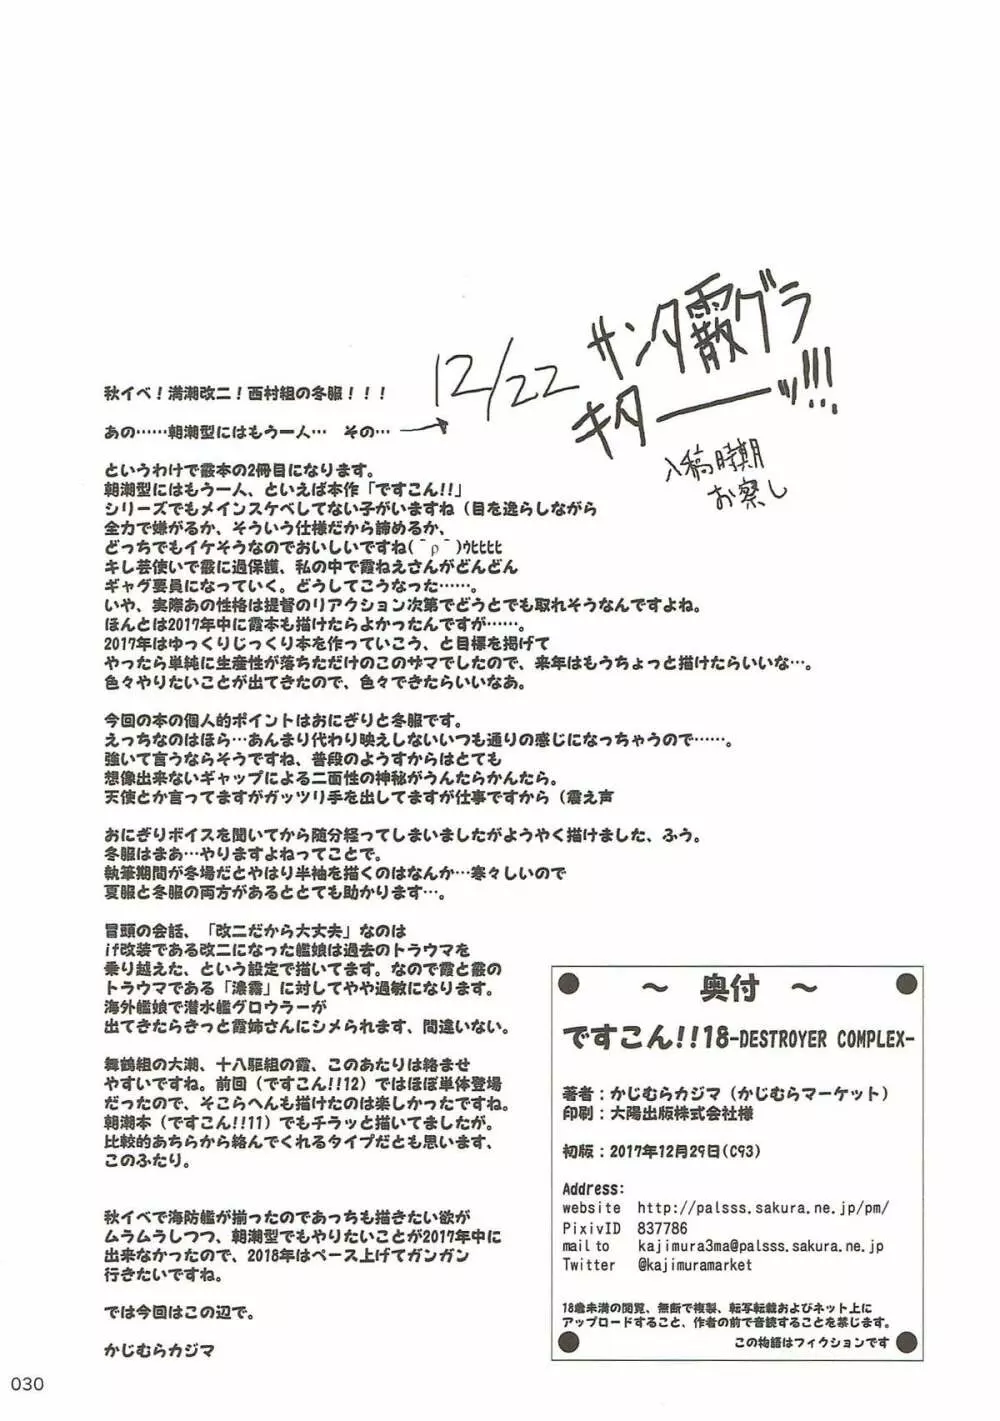 12/22 サンタ霰グラ
キターーーッ!!!
入稿時期
お察し
秋イベ!満潮改二!西村組の冬服!!!
あの……朝潮型にはもう一人… その…
というわけで霰本の2冊目になります。
朝潮型にはもう一人、といえば本作「ですこん!!」
シリーズでもメインスケベしてない子がいますね(目を逸らしながら
全力で嫌がるか、そういう仕様だから諦めるか、
どっちでもイケそうなのでおいしいですね(¯ρ¯)ｳﾋﾋﾋﾋ
キレ芸使いで霰に過保護、私の中で霞ねえさんがどんどん
ギャグ要員になっていく。どうしてこうなった……。
いや、実際あの性格は提督のリアクション次第でどうとでも取れそうなんですよね。
ほんとは2017年中に霞本も描けたらよかったんですが……。
2017年はゆっくりじっくり本を作っていこう、と目標を掲げて
やったら単純に生産性が落ちただけのこのサマでしたので、来年はもうちょっと描けたらいいな…。
色々やりたいことが出てきたので、色々できたらいいなあ。
今回の本の個人的ポイントはおにぎりと冬服です。
えっちなのはほら…あんまり代わり映えしないいつも通りの感じになっちゃうので……。
強いて言うならそうですね、普段のようすからはとても
想像出来ないギャップによる二面性の神秘がうんたらかんたら。
天使とか言ってますがガッツリ手を出してますが仕事ですから(震え声
おにぎりボイスを聞いてから随分経ってしまいましたがようやく描けました、ふう。
冬服はまあ…やりますよねってことで。
執筆期間が冬場だとやはり半袖を描くのはなんか…寒々しいので
夏服と冬服の両方があるととても助かります…。
冒頭の会話、「改二だから大丈夫」なのは
if改装である改二になった艦娘は過去のトラウマを
乗り越えた、という設定で描いてます。なので霞と霰の
トラウマである「濃霧」に対してやや過敏になります。
海外艦娘で潜水艦グロウラーが
出てきたらきっと霞姉さんにシメられます、間違いない。
舞鶴組の大潮、十八駆組の霞、このあたりは絡ませ
やすいですね。前回(ですこん!!12)ではほぼ単体登場
だったので、そこらへんも描けたのは楽しかったですね。
朝潮本(ですこん!!11)でもチラッと描いてましたが。
比較的あちらから絡んでくれるタイプだとも思います、
このふたり。
秋イベで海防艦が揃ったのであっちも描きたい欲が
ムラムラしつつ、朝潮型でもやりたいことが2017年中に
出来なかったので、2018年はペース上げてガンガン
行きたいですね。
では今回はこの辺で。
かじむらカジマ
~ 奥付 ~
ですこん!!18-DESTROYER COMPLEX-
著者:かじむらカジマ(かじむらマーケット)
印刷:大陽出版株式会社様
初版:2017年12月29日(C93)
Address:
website http://palsss.sakura.ne.jp/pm/
PixivID 837786
mail to kajimura3ma@palsss.sakura.ne.jp
Twitter @kajimuramarket
18歳未満の閲覧、無断で複製、転写転載およびネット上に
アップロードすること、作者の前で音読することを禁じます。
この物語はフィクションです
030